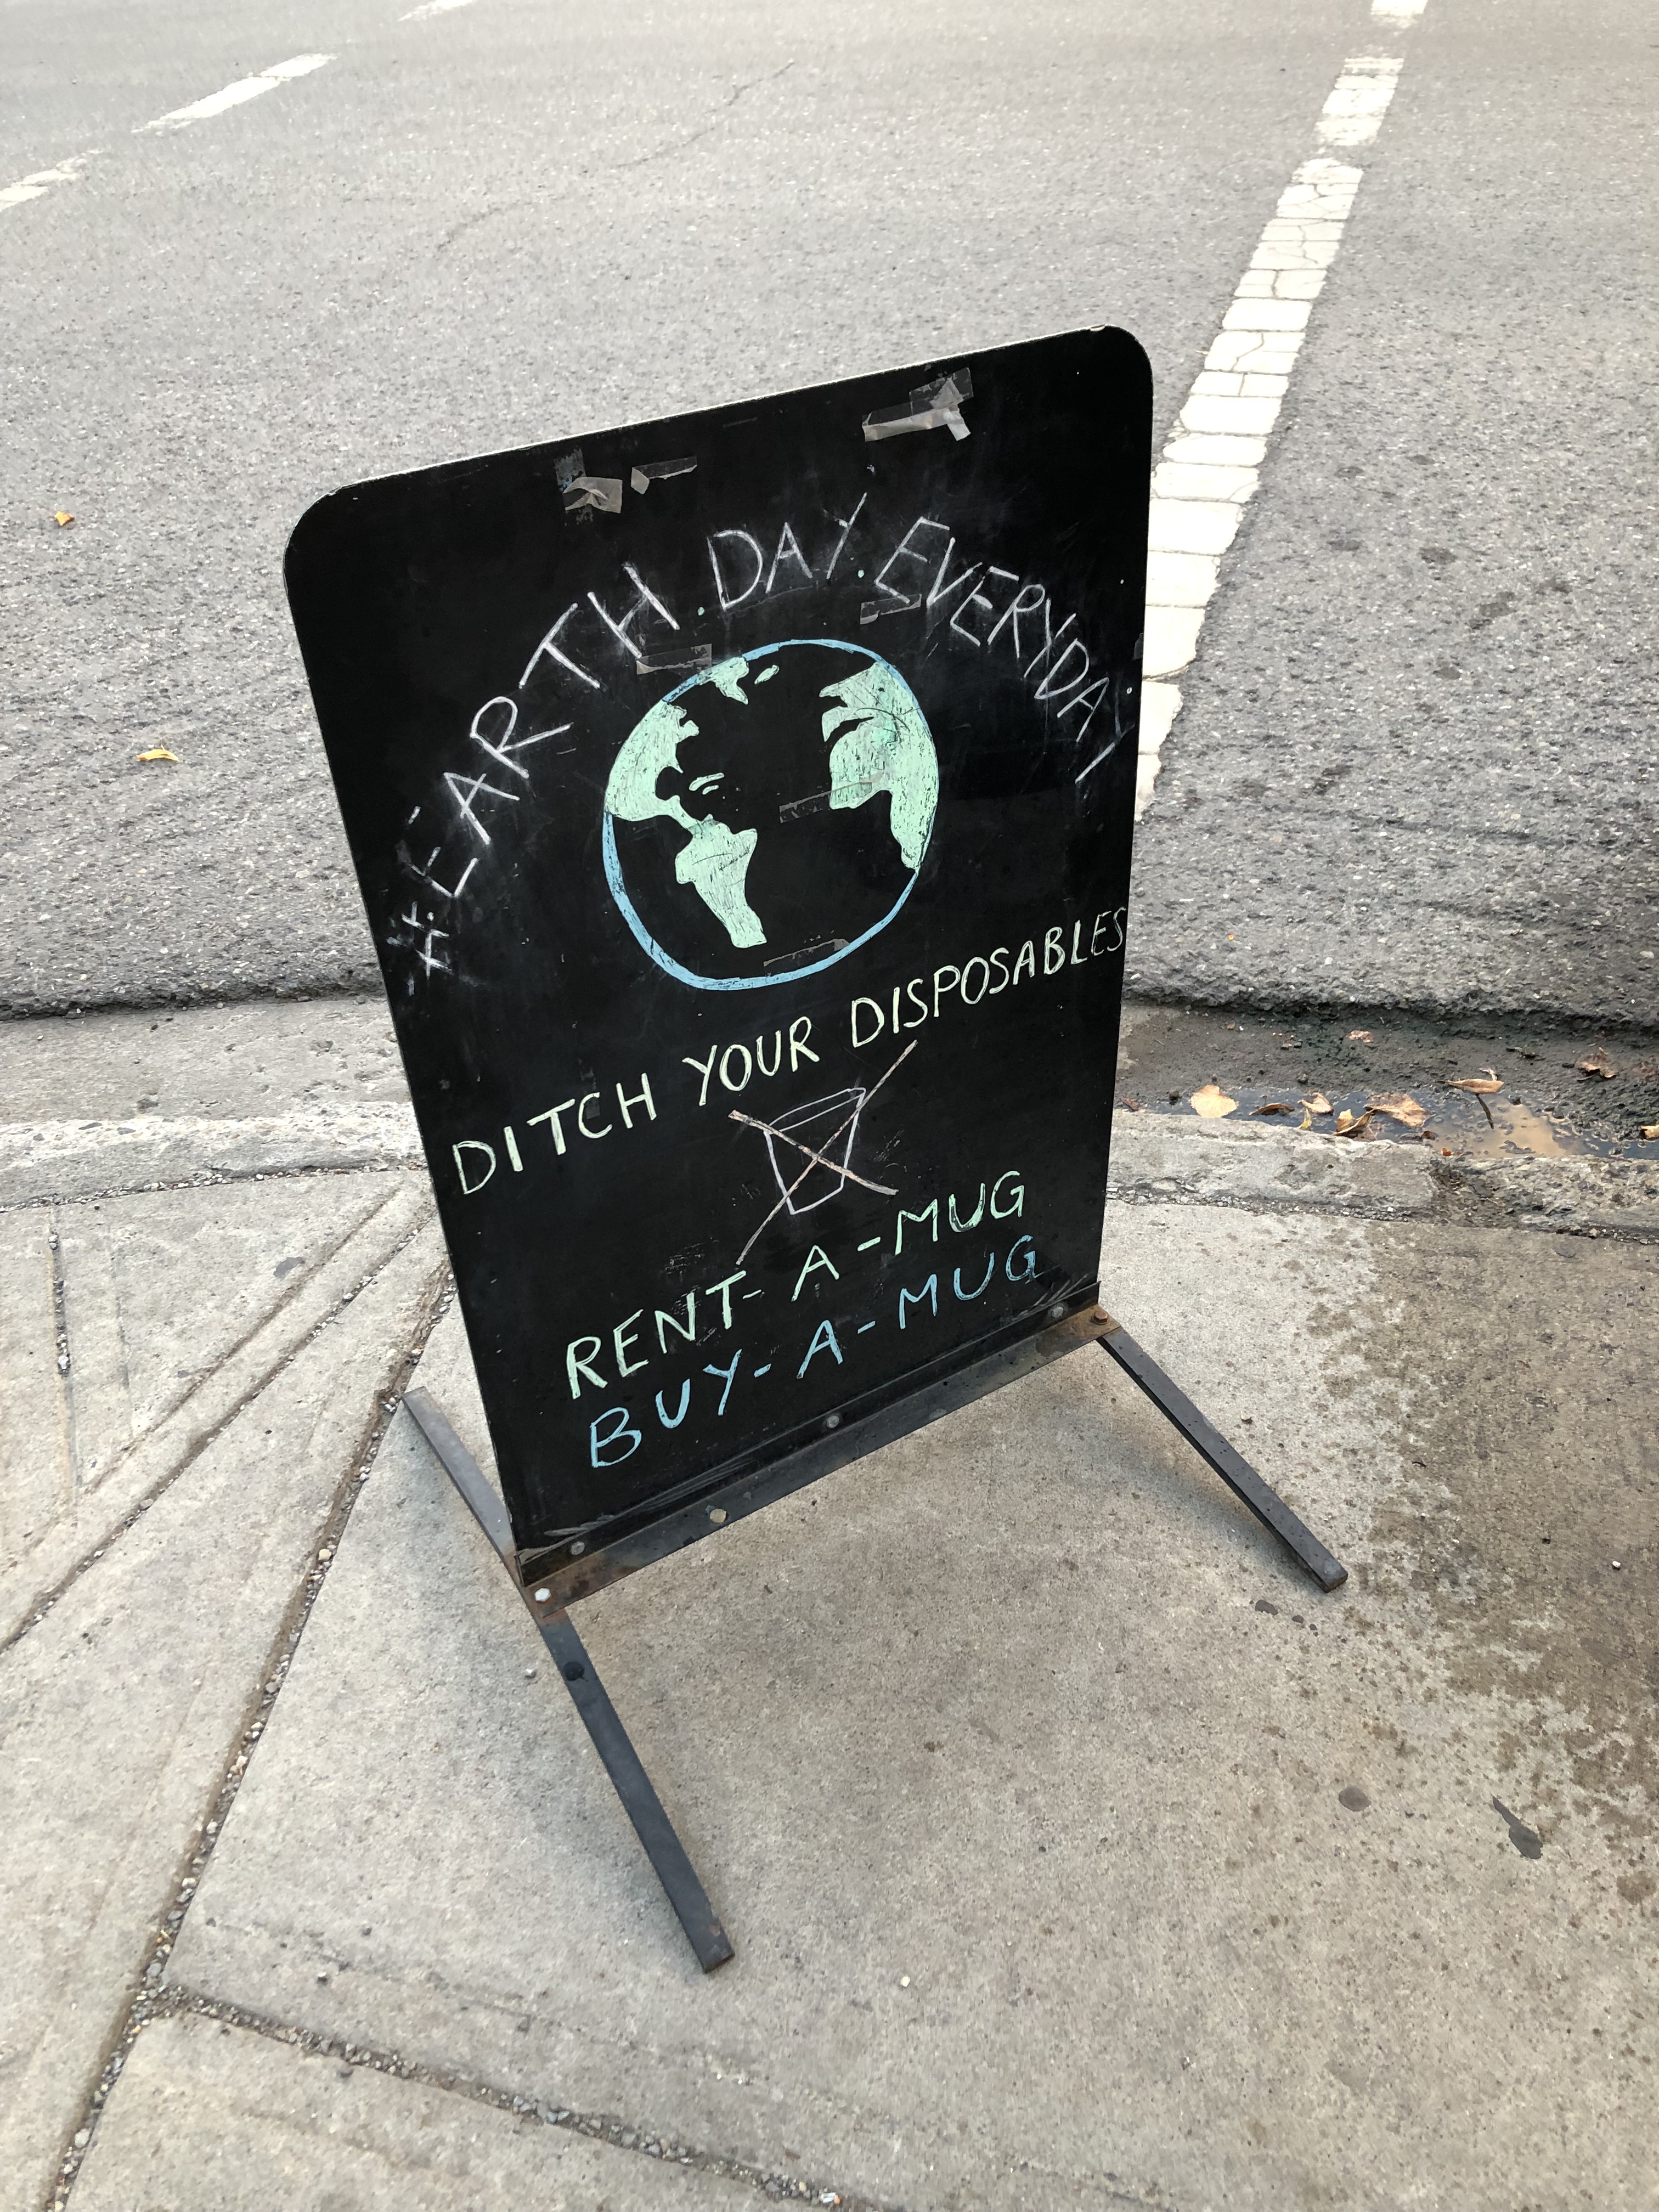 #EARTH.DAY.EVERYDAY
DITCH YOUR DISPOSABLES
RENT-A-MUG
BUY-A-MUG